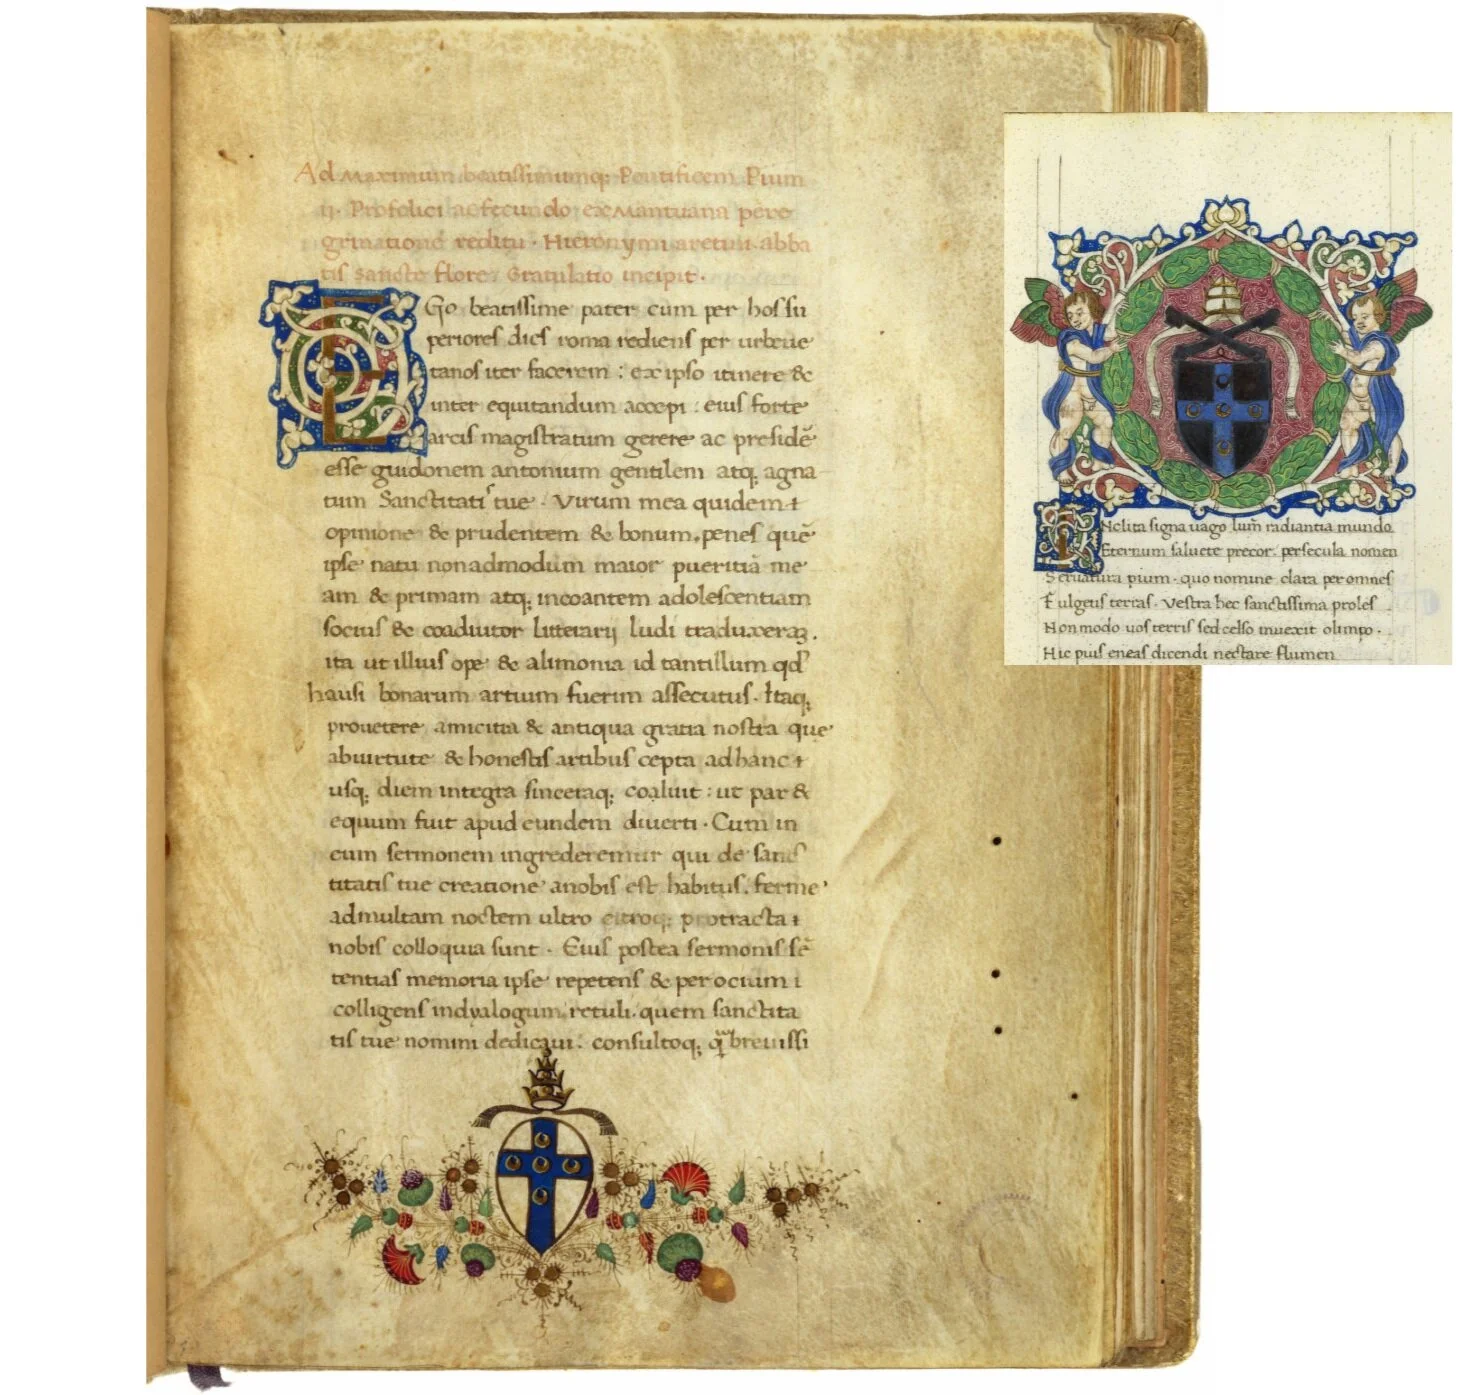 Ad maximum beatissimumq; Pontificem Pium
ii. Profelici ac fecundo ex Mantuana pere
grinatione reditu. Hieronymi aretini abba
tis sancte flore. Gratulatio incipit.
EGo beatissime pater cum per hos su
periores dies roma rediens per urbeue
tanos iter facerem : ex ipso itinere &
inter equitandum accepi : eius forte
arcis magistratum gerere ac presidē
esse guidonem antonium gentilem atq; agna
tum Sanctitati tue. Virum mea quidem
opinione & prudentem & bonum. penes quē
ipse natu non admodum maior pueritiā me
am & primam atq; incoantem adolescentiam
socius & coadiutor litterarij ludi traduxeraꝫ.
ita ut illius ope & alimonia id tantillum qd
hausi bonarum artium fuerim assecutus. Itaq;
prouetere amicitia & antiqua gratia nostra que
abuirtute & honestis artibus cepta ad hanc
usq; diem integra sinceraq; coaluit : ut par &
equum fuit apud eundem diuerti. Cum in
eum sermonem ingrederemur qui de sanc
titatis tue creatione anobis est habitus. ferme
admultam noctem ultro citroq; protracta
nobis colloquia sunt. Eius postea sermonis sē
tentias memoria ipse repetens & per ocium
colligens in dyalogum retuli. quem sanctita
tis tue nomini dedicaui. consultoq; breuissi
INclita signa uago lum̄ radiantia mundo
Eternum saluete precor. persecula nomen
Seruatura pium. quo nomine clara per omnes
Fulgens terras. Vestra hec sanctissima proles
Non modo uos terris sed celso inuexit olimpo.
Hic pius eneas dicendi nectare flumen